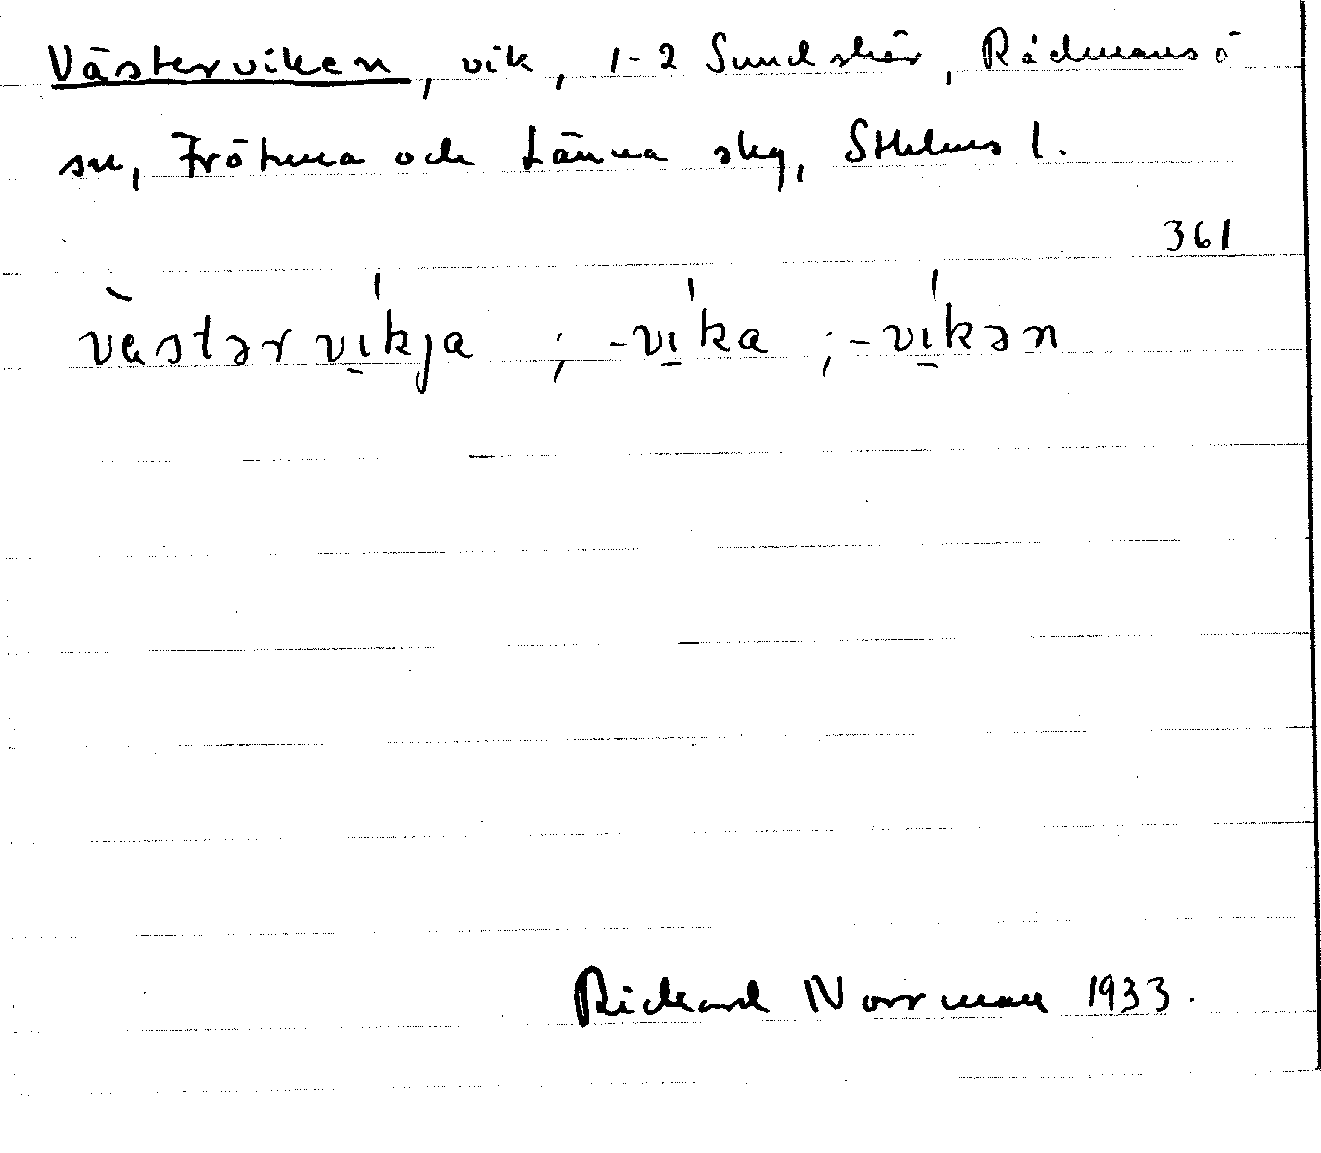 Västerviken, vik, 1-2 Sundskär, Rådmansö
sn, Frötuna och Länna skg, Sthlms l.
361
vàstər ví̱kja ; -ví̱ka ; -ví̱kən
Richard Norrman 1933.